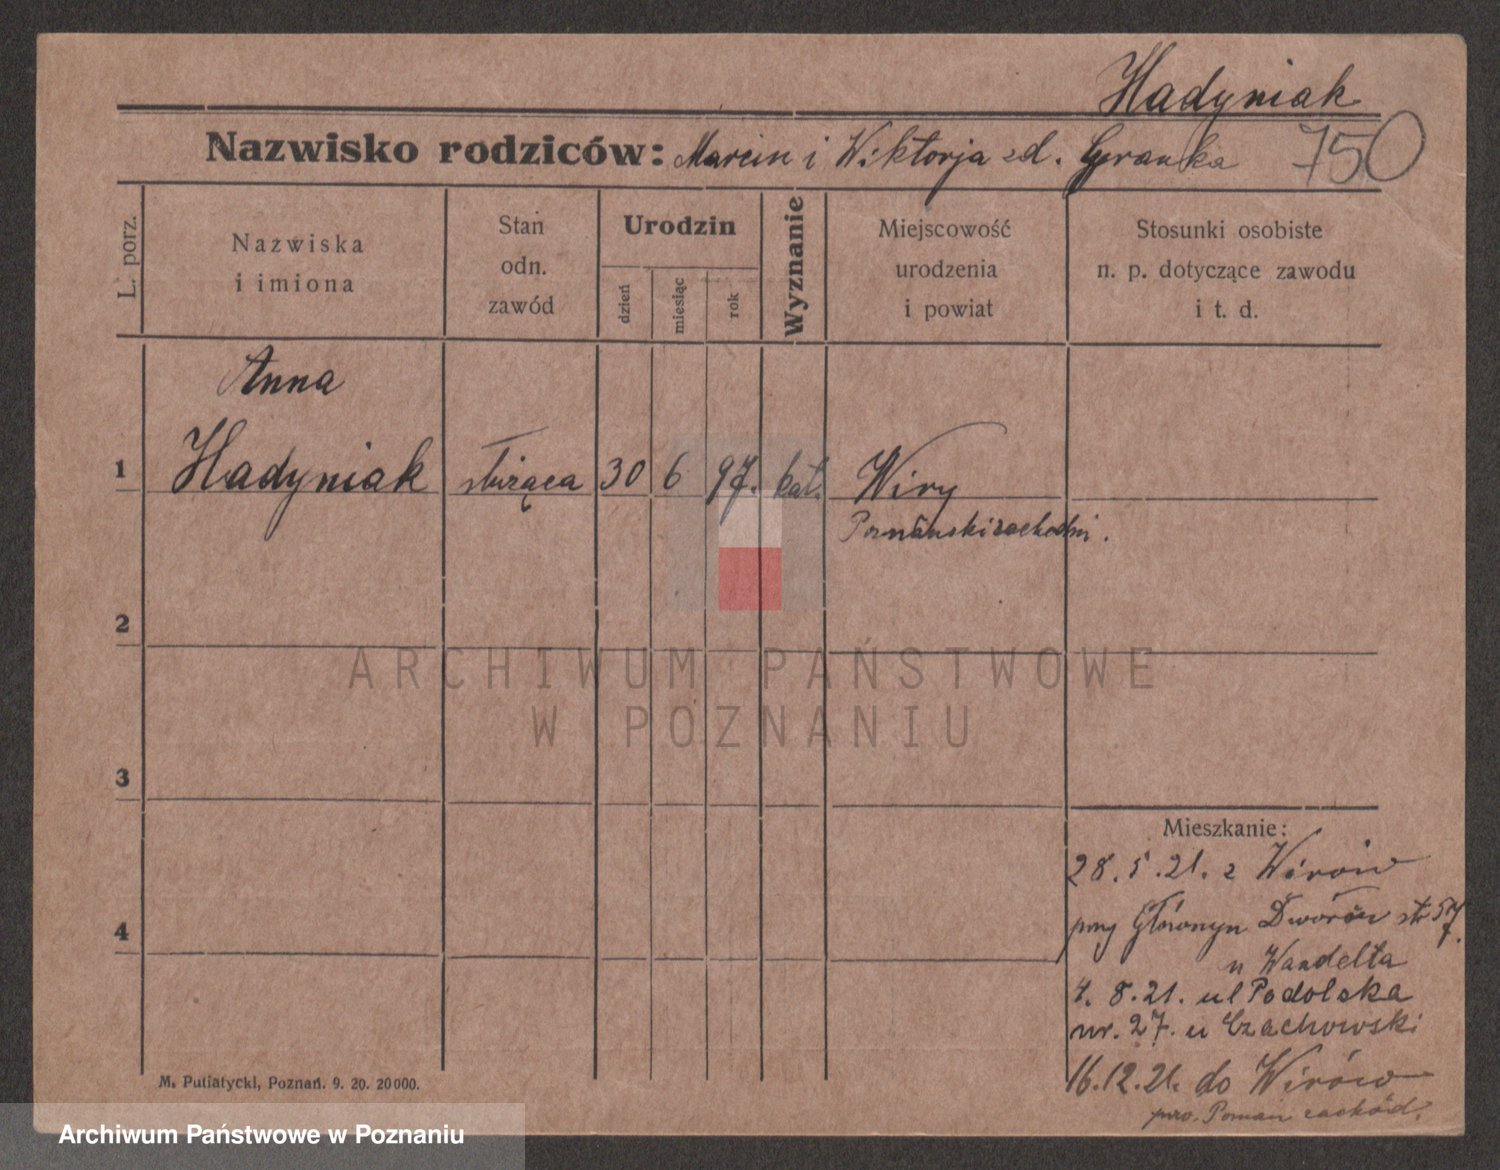 Hadyniak
Nazwisko rodziców: Marcin i Wiktorja zd. Granka 750
L. porz.
Nazwiska
i imiona
Stan
odn.
zawód
Urodzin
dzień
miesiąc
rok
Wyznanie
Miejscowość
urodzenia
i powiat
Stosunki osobiste
n. p. dotyczące zawodu
i t. d.
Anna
1 Hadyniak służąca 30 6 97. kat. Wiry
Poznański zachodni.
2
ARCHIWUM PAŃSTWOWE
W POZNANIU
3
Mieszkanie:
28. 5. 21. z Wirów
4 przy Głównym Dworcu str 57
u Wandelta
4. 8. 21. ul Podolska
nr. 27. u Czachowski
16.12.21. do Wirów
pow. Poznań zachód.
M. Putiatycki, Poznań. 9. 20. 20000.
Archiwum Państwowe w Poznaniu